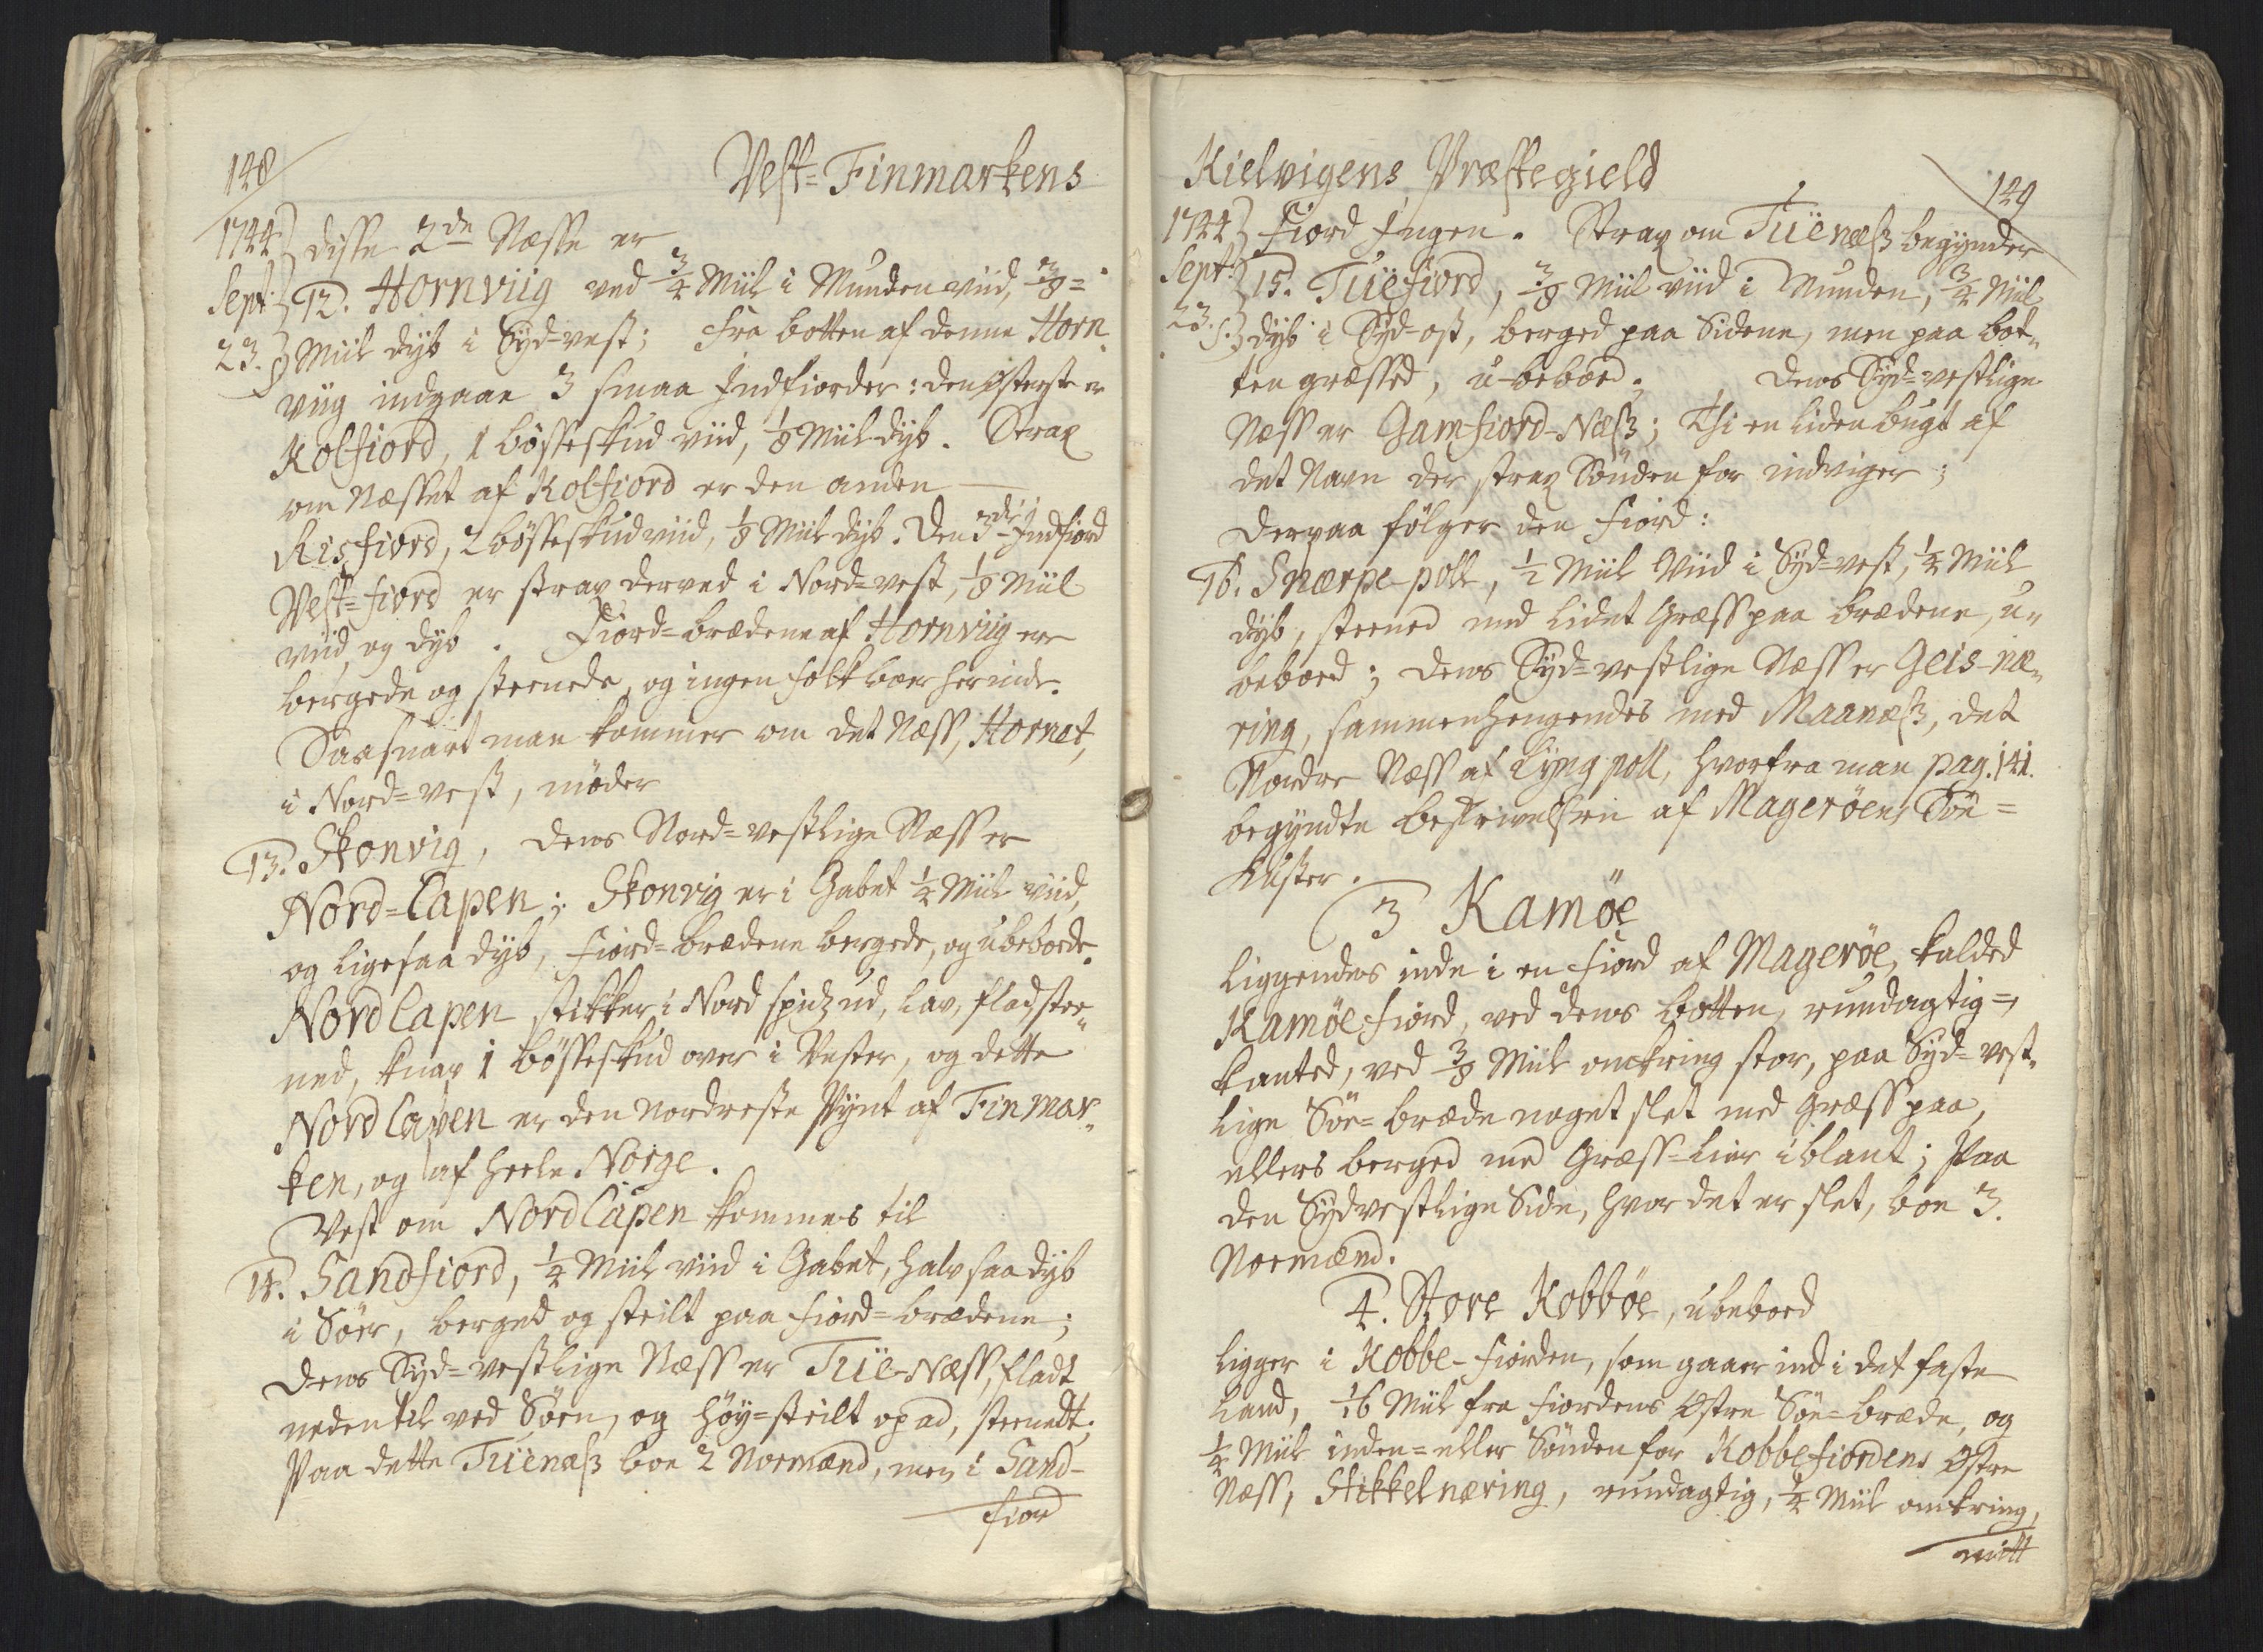 148
Vest=Finmarkens
1744 disse 2de Næsse er
Sept: 12. Hornviig ved 3/4 Miil i Munden viid, 3/8=
23. Miil dyb i Syd-vest; fra botten af denne Horn„
viig indgaae 3 smaa Indfiorder: den østerste er
Kolfiord, 1 bösseskud viid, 1/8 Miil dyb. Strax
om Næsset af Kolfiord er den anden
Risfiord, 2 bösseskud viid, 1/8 Miil dyb. Den 3die Indfiord
Vest=fiord er strax derved i Nord=vest, 1/8 Miil
viid, og dyb. Fiord=brædene af Hornviig ere
bergede og steenede, og ingen folk boer herinde.
Saasnart man kommer om det Næss, Hornet,
i Nord=vest, möder
13. Skonvig, dens Nord=vestlige Næss er
Nord=Capen; Skonvig er i Gabet 1/4 Miil viid,
og ligesaa dyb, fiord=brædene bergede, og ubeboede.
NordCapen stikker i Nord spidz ud, lav, flad, stee„
ned, knap 1 bösseskud over i Vester, og dette
NordCapen er den nordreste Pynt af Finmar„
ken, og af heele Norge.
Vest om NordCapen kommes til
14. Sandfiord, 1/4 Miil viid i Gabet, halv saa dyb
i Söer, berged og steilt paa fiord=brædene;
Dens Syd=vestlige Næss er Tüe-Næss, fladt
nedentil ved Söen, og höy=steilt opad, steenedt;
Paa dette Tüenæss boe 2 Normænd, men i Sand-
fiord
Kielvigens Præstegield
149
1744 fiord Ingen. Strax om Tüenæss begynder
Sept: 15. Tüefiord, 3/8 Miil viid i Munden, 3/4 Miil
23. dyb i Syd-ost, berged paa Sidene, men paa bot„
ten græssed, u-beboed; Dens Syd=vestlige
Næss er Gamfiord-Næss; Thi en liden bugt af
det Navn der strax Sönden for indviger;
Derpaa fölger den fiord:
16. Snærpe-poll, 1/2 Miil Viid i Syd=vest, 1/4 Miil
dyb, steened med lidet Græss paa brædene, u„
beboed; Dens Syd=vestlige Næss er Geis-næ„
ring, sammenhengendes med Maanæss, det
Nordre Næss af Lyngpoll, hvorfra man pag. 141.
begyndte beskrivelsen af Mageröens Söe=
Kuster.
3 Kamöe
liggendes inde i en fiord af Mageröe, kalded
Kamöefiord, ved dens botten, rundagtig=
kanted, ved 3/8 Miil omkring stor, paa Syd=vest„
lige Söe=bræde noget slet med Græss paa,
ellers berged med Græss=lier iblant; Paa
den Sydvestlige Side, hvor det er slet, boe 3.
Normænd.
4. Store Kobböe, ubeboed
ligger i Kobbe-fiorden, som gaaer ind i det faste
Land, 1/16 Miil fra fiordens Østre Söe=bræde, og
1/4 Miil inden= eller Sönden for Kobbefiordens Østre
Næss, Stikkelnæring, rundagtig, 1/4 Miil omkring,
mitt